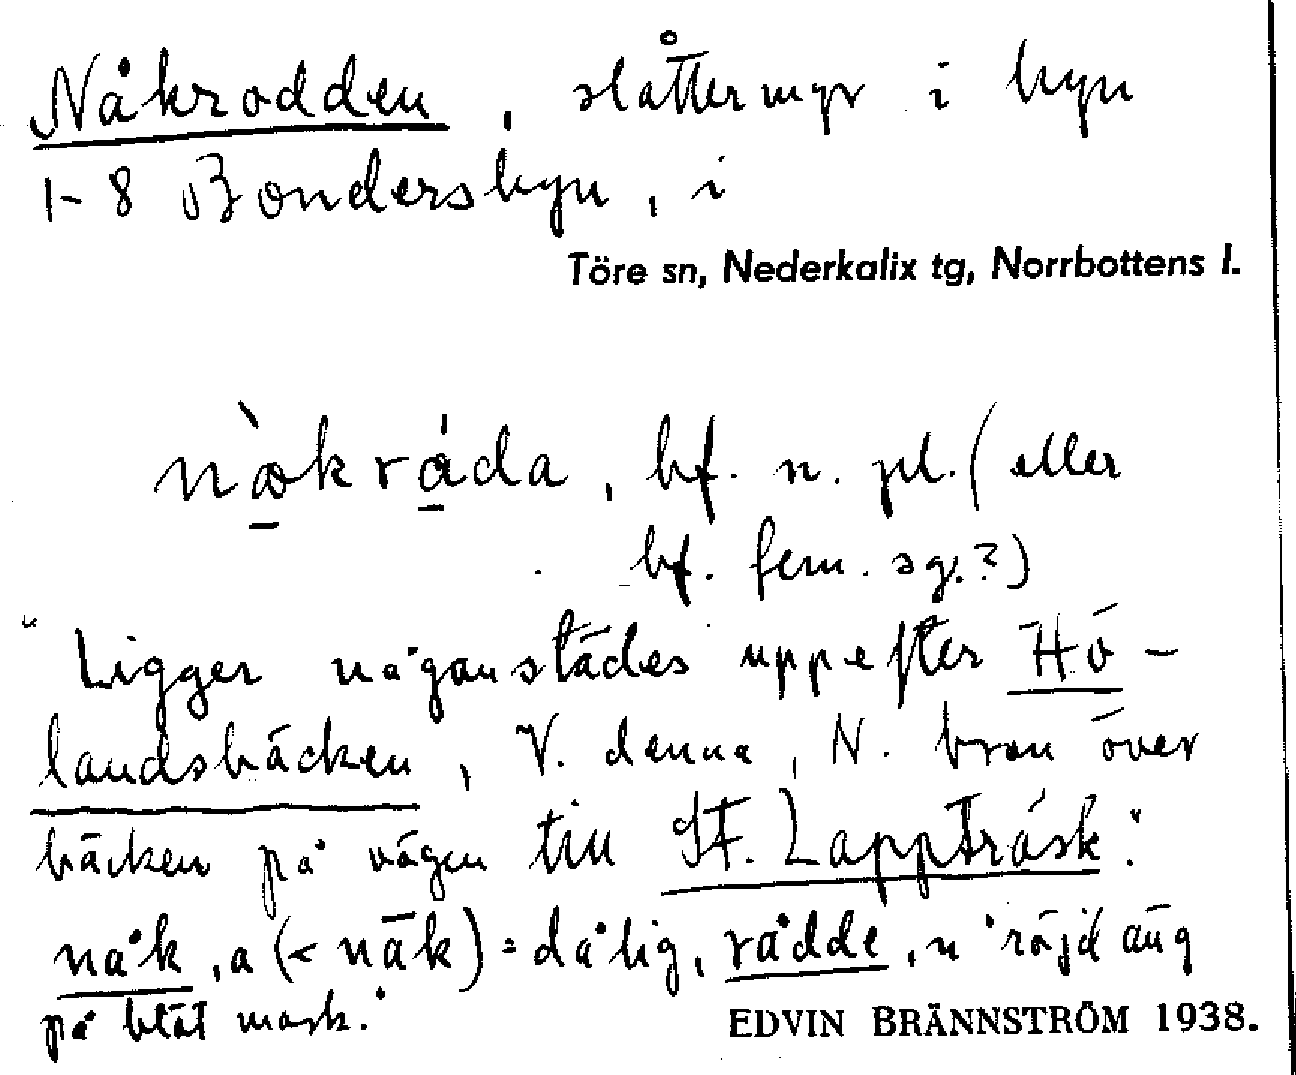 Nåkrodden, slåttermyr i byn
1-8 Bondersbyn, i
Töre sn, Nederkalix tg, Norrbottens l.
nàkráda, bf. n. pl. (eller
bf. fem. sg.?)
"Ligger någonstädes uppefter Hö-
landsbäcken, V. denna, N. bron över
bäcken på vägen till St. Lappträsk."
nåk, a (< näk) = dålig, rådde, n "röjd äng
på blöt mark."
EDVIN BRÄNNSTRÖM 1938.